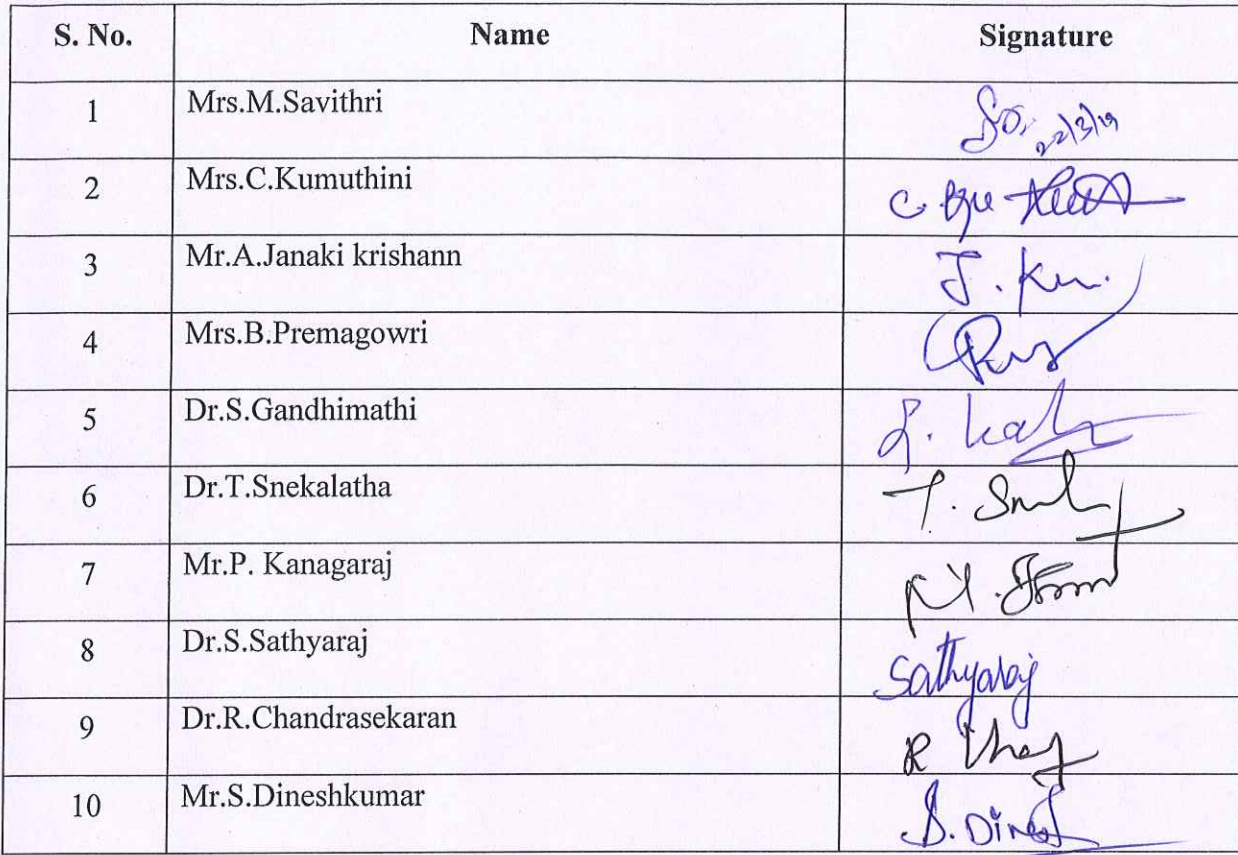 S. No. Name Signature
1 Mrs.M.Savithri 22/3/19
2 Mrs.C.Kumuthini C.
3 Mr.A.Janaki krishann J. Kr.
4 Mrs.B.Premagowri
5 Dr.S.Gandhimathi
6 Dr.T.Snekalatha T.
7 Mr.P. Kanagaraj
8 Dr.S.Sathyaraj Sathyaraj
9 Dr.R.Chandrasekaran R
10 Mr.S.Dineshkumar S. Dinesh